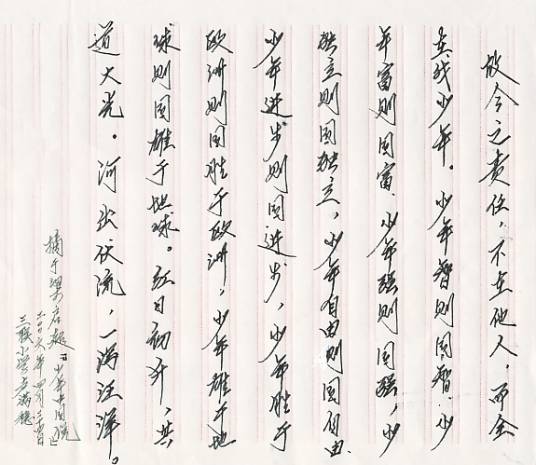 故今之责任，不在他人，而全
在我少年。少年智则国智，少
年富则国富，少年强则国强，少
独立则国独立，少年自由则国自由，
少年进步则国进步，少年胜于
欧洲则国胜于欧洲，少年雄于地
球则国雄于地球。红日初升，其
道大光。河出伏流，一泻汪洋。
摘于梁启超《少年中国说》